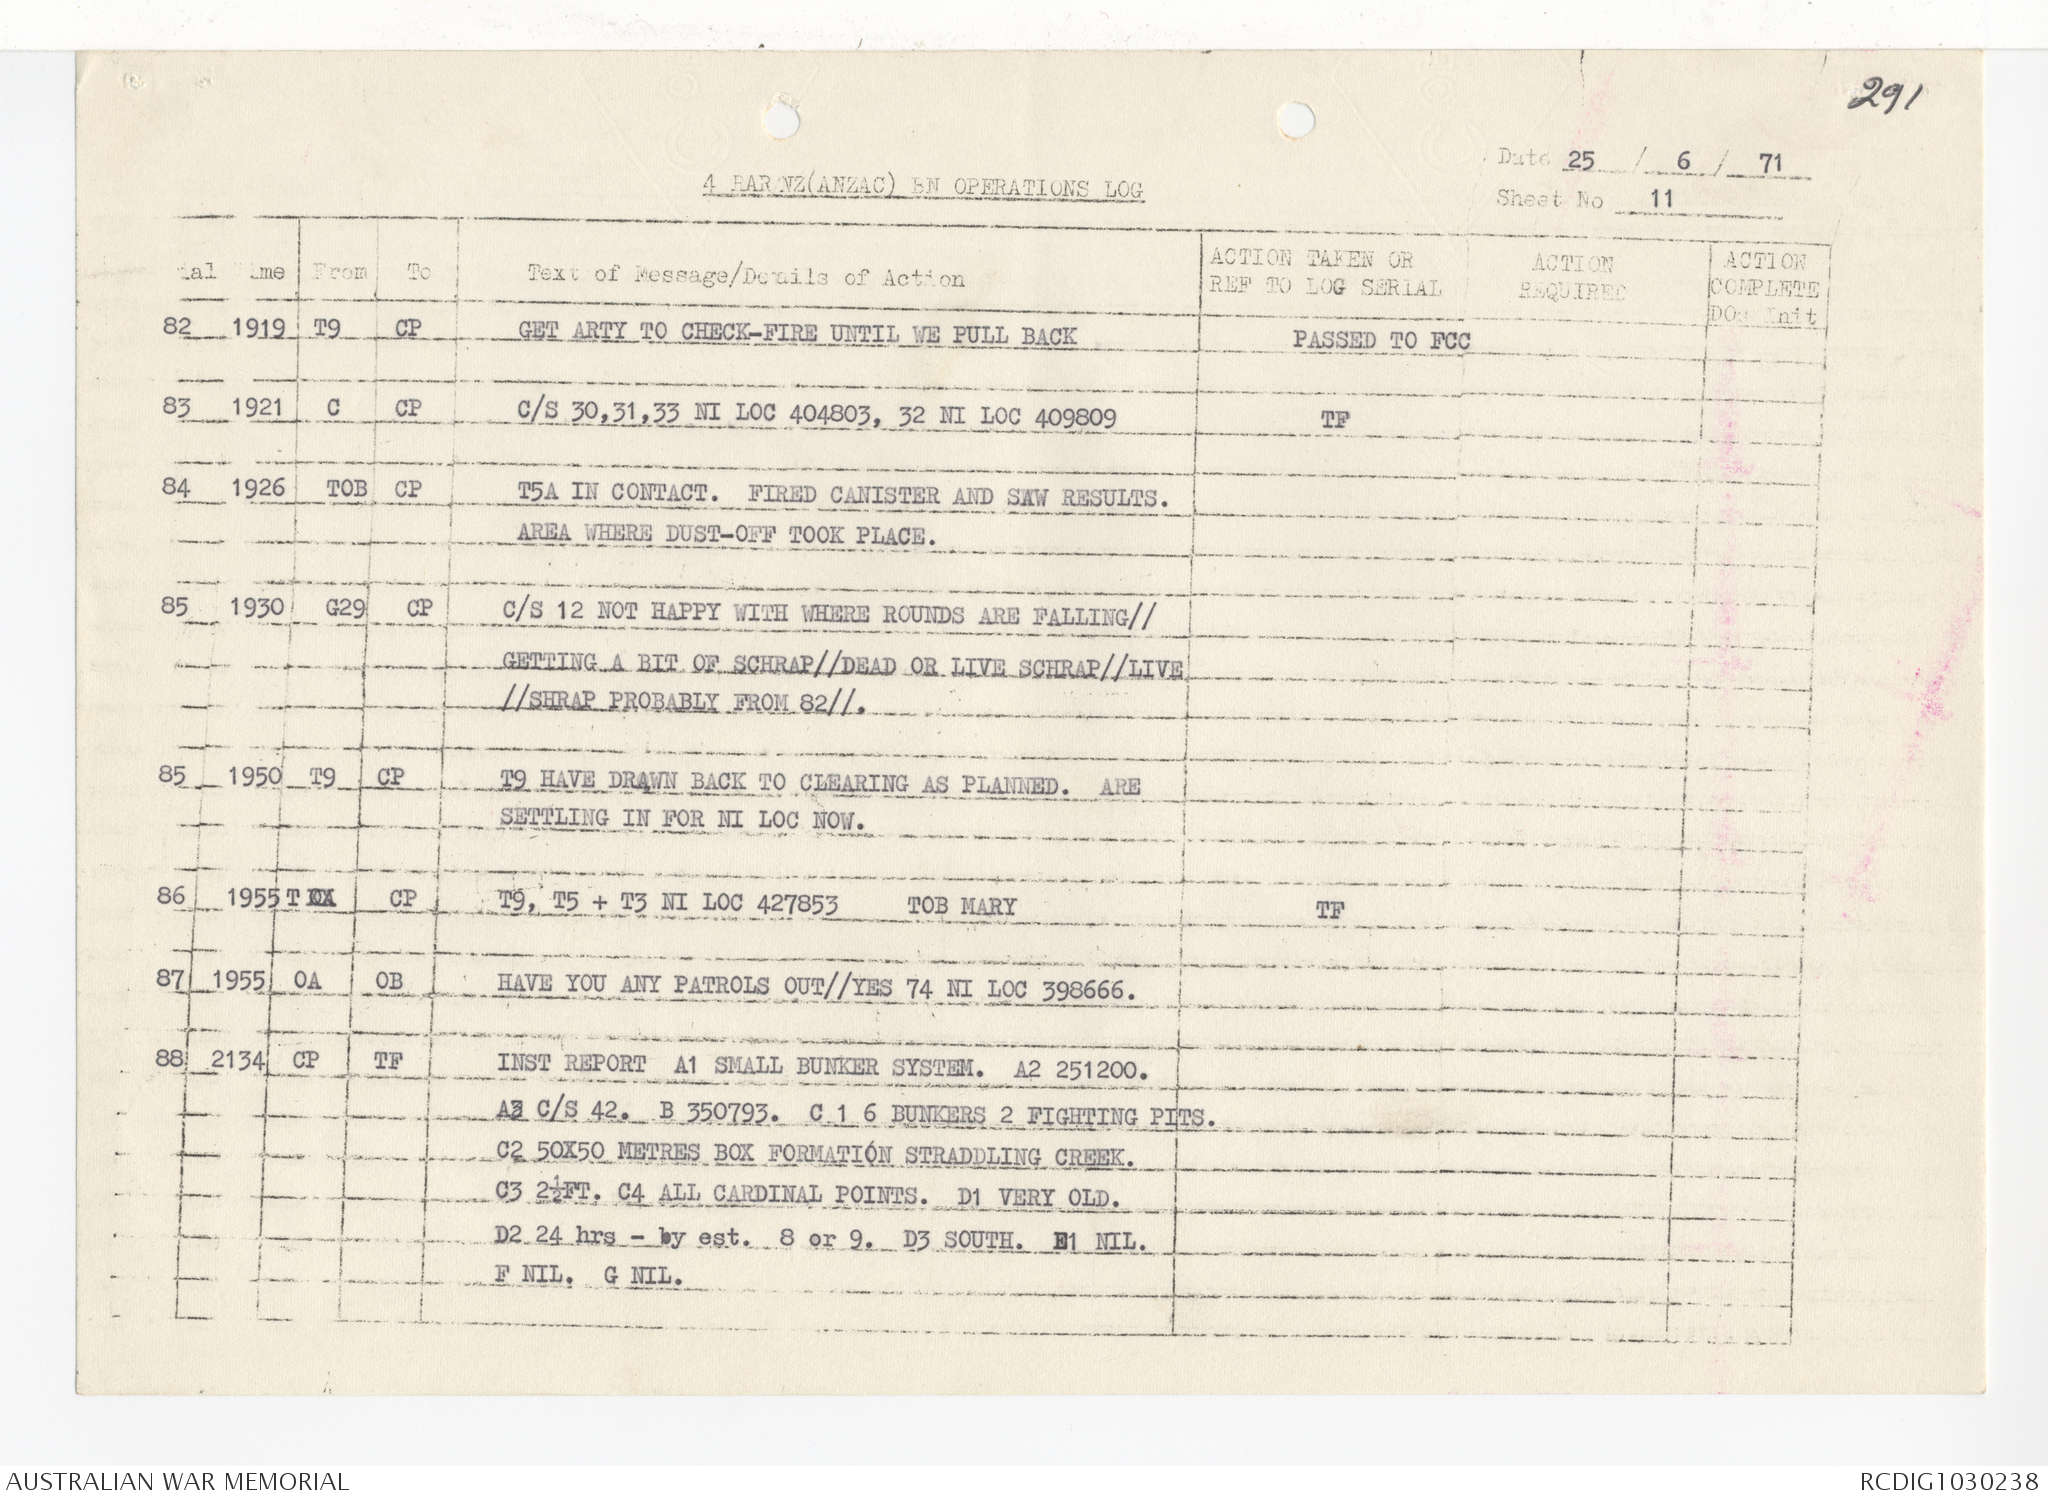 291
Date 25 / 6 / 71
4 RAR/NZ(ANZAC) BN OPERATIONS LOG
Sheet No 11
ial Time From To Text of Message/Details of Action ACTION TAKEN OR REF TO LOG SERIAL ACTION REQUIRED ACTION COMPLETE DOs Init
82 1919 T9 CP GET ARTY TO CHECK-FIRE UNTIL WE PULL BACK PASSED TO FCC
83 1921 C CP C/S 30,31,33 NI LOC 404803, 32 NI LOC 409809 TF
84 1926 TOB CP T5A IN CONTACT. FIRED CANISTER AND SAW RESULTS.
AREA WHERE DUST-OFF TOOK PLACE.
85 1930 G29 CP C/S 12 NOT HAPPY WITH WHERE ROUNDS ARE FALLING//
GETTING A BIT OF SCHRAP//DEAD OR LIVE SCHRAP//LIVE
//SHRAP PROBABLY FROM 82//.
85 1950 T9 CP T9 HAVE DRAWN BACK TO CLEARING AS PLANNED. ARE
SETTLING IN FOR NI LOC NOW.
86 1955 T CP T9, T5 + T3 NI LOC 427853 TOB MARY TF
87 1955 OA OB HAVE YOU ANY PATROLS OUT//YES 74 NI LOC 398666.
88 2134 CP TF INST REPORT A1 SMALL BUNKER SYSTEM. A2 251200.
A3 C/S 42. B 350793. C 1 6 BUNKERS 2 FIGHTING PITS.
C2 50X50 METRES BOX FORMATION STRADDLING CREEK.
C3 2½FT. C4 ALL CARDINAL POINTS. D1 VERY OLD.
D2 24 hrs - by est. 8 or 9. D3 SOUTH. E1 NIL.
F NIL. G NIL.
AUSTRALIAN WAR MEMORIAL
RCDIG1030238